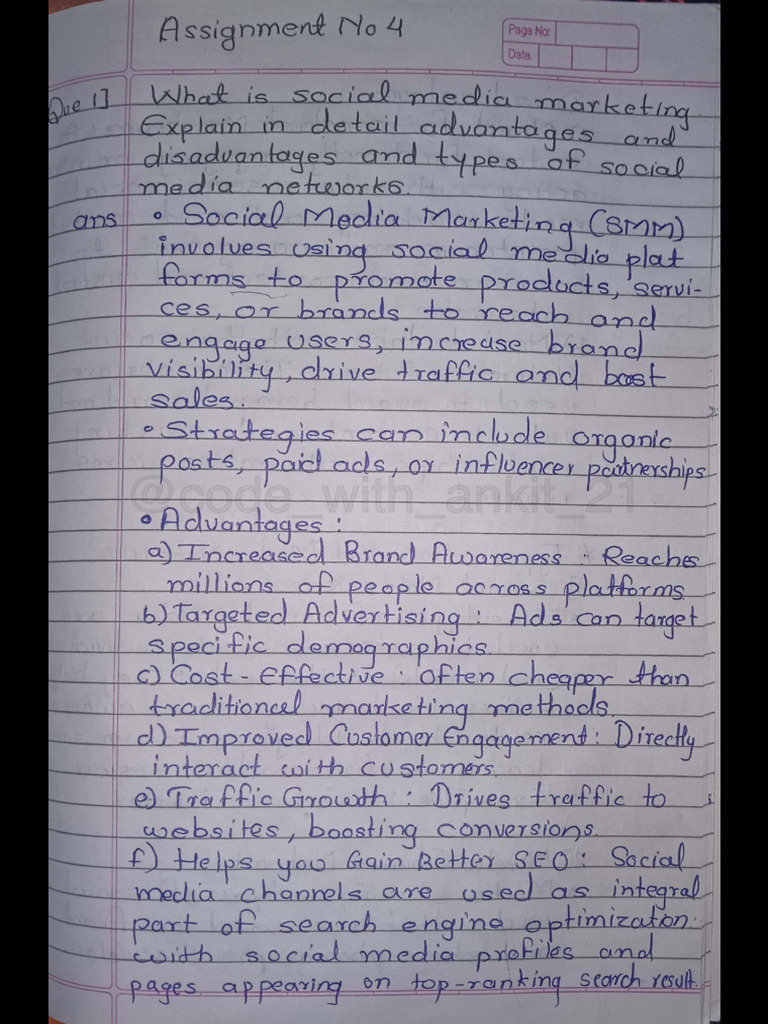 Assignment No 4
Page No:
Date:
Que 1] What is social media marketing.
Explain in detail advantages and
disadvantages and types of social
media networks.
ans • Social Media Marketing (SMM)
involves using social media plat
forms to promote products, servi-
ces, or brands to reach and
engage users, increase brand
visibility, drive traffic and boost
sales.
• Strategies can include organic
posts, paid ads, or influencer partnerships
@code_with_ankit_21
• Advantages :
a) Increased Brand Awareness : Reaches
millions of people across platforms.
b) Targeted Advertising : Ads can target
specific demographics.
c) Cost-Effective : often cheaper than
traditional marketing methods.
d) Improved Customer Engagement : Directly
interact with customers.
e) Traffic Growth : Drives traffic to
websites, boosting conversions.
f) Helps you Gain Better SEO : Social
media channels are used as integral
part of search engine optimization.
with social media profiles and
pages appearing on top-ranking search result.